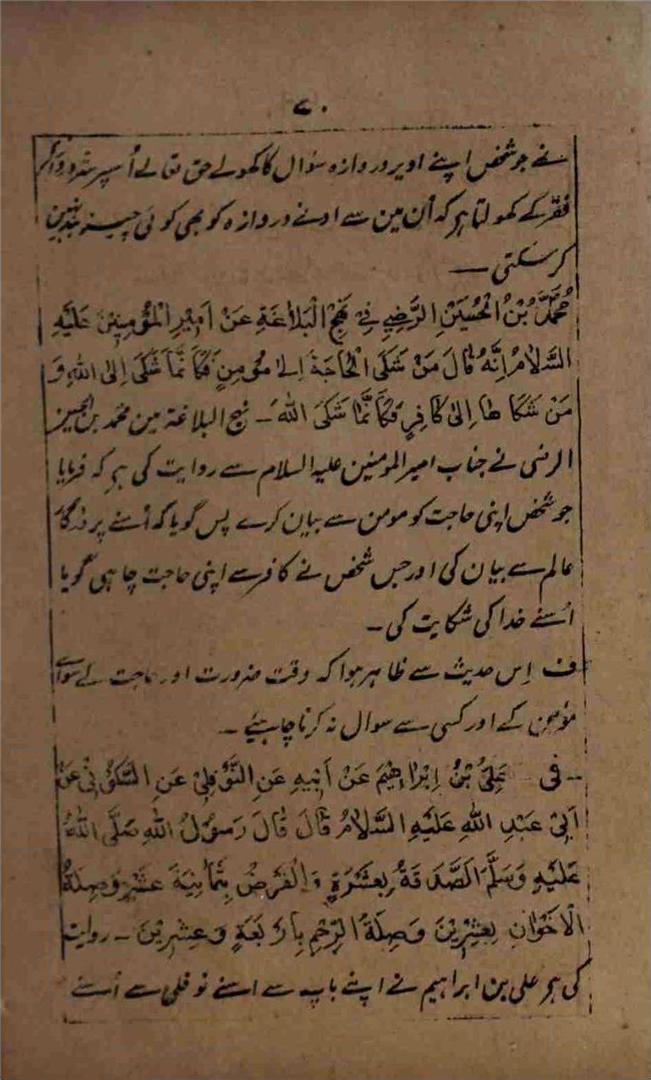 ۷۰
نے جو شخص اپنے اوپر دروازہ سوال کا کھولے حق تعالے اُسپر ستّر دروازے
فقر کے کھولتا ہر کہ اُن مین سے ادنے دروازہ کو بھی کوئی چیز بند نہین
کر سکتی ـ
مُحَمَّدُ بْنُ الْحُسَیْنِ الرَّضِیِّ فِیْ نَهْجِ الْبَلَاغَةِ عَنْ اَمِیْرِ الْمُؤْمِنِیْنَ عَلَیْهِ
السَّلَامُ اِنَّهُ قَالَ مَنْ شَکَی الْحَاجَةَ اِلٰی مُؤْمِنٍ فَکَاَنَّمَا شَکَی اِلَی اللهِ وَ
مَنْ شَکَاهَا اِلٰی کَافِرٍ فَکَاَنَّمَا شَکَی اللهَ ـ نہج البلاغة مین محمد بن الحسین
الرضی نے جناب امیر المومنین علیہ السلام سے روایت کی ہر کہ فرمایا
جو شخص اپنی حاجت کو مومن سے بیان کرے پس گویا کہ اُسنے پروردگار
عالم سے بیان کی اور جس شخص نے کافر سے اپنی حاجت چاہی گویا
اُسنے خدا کی شکایت کی ـ
ف اِس حدیث سے ظاہر ہوا کہ وقت ضرورت اور حاجت کے سواے
مؤمن کے اور کسی سے سوال نہ کرنا چاہیئے ـ
ـ فی عَلِیُّ بْنُ اِبْرَاهِیْمَ عَنْ اَبِیْهِ عَنِ النَّوْفَلِیِّ عَنِ السَّکُوْنِیِّ عَنْ
اَبِیْ عَبْدِ اللهِ عَلَیْهِ السَّلَامُ قَالَ قَالَ رَسُوْلُ اللهِ صَلَّی اللهُ
عَلَیْهِ وَسَلَّمَ الصَّدَقَةُ بِعَشَرَةٍ وَالْقَرْضُ بِثَمَانِیَةَ عَشَرَ وَصِلَةُ
الْاَخْوَانِ بِعِشْرِیْنَ وَصِلَةُ الرَّحِمِ بِاَرْبَعَةٍ وَعِشْرِیْنَ ـ روایت
کی ہر علی بن ابراہیم نے اپنے باپ سے اسنے نوفلی سے اُسنے